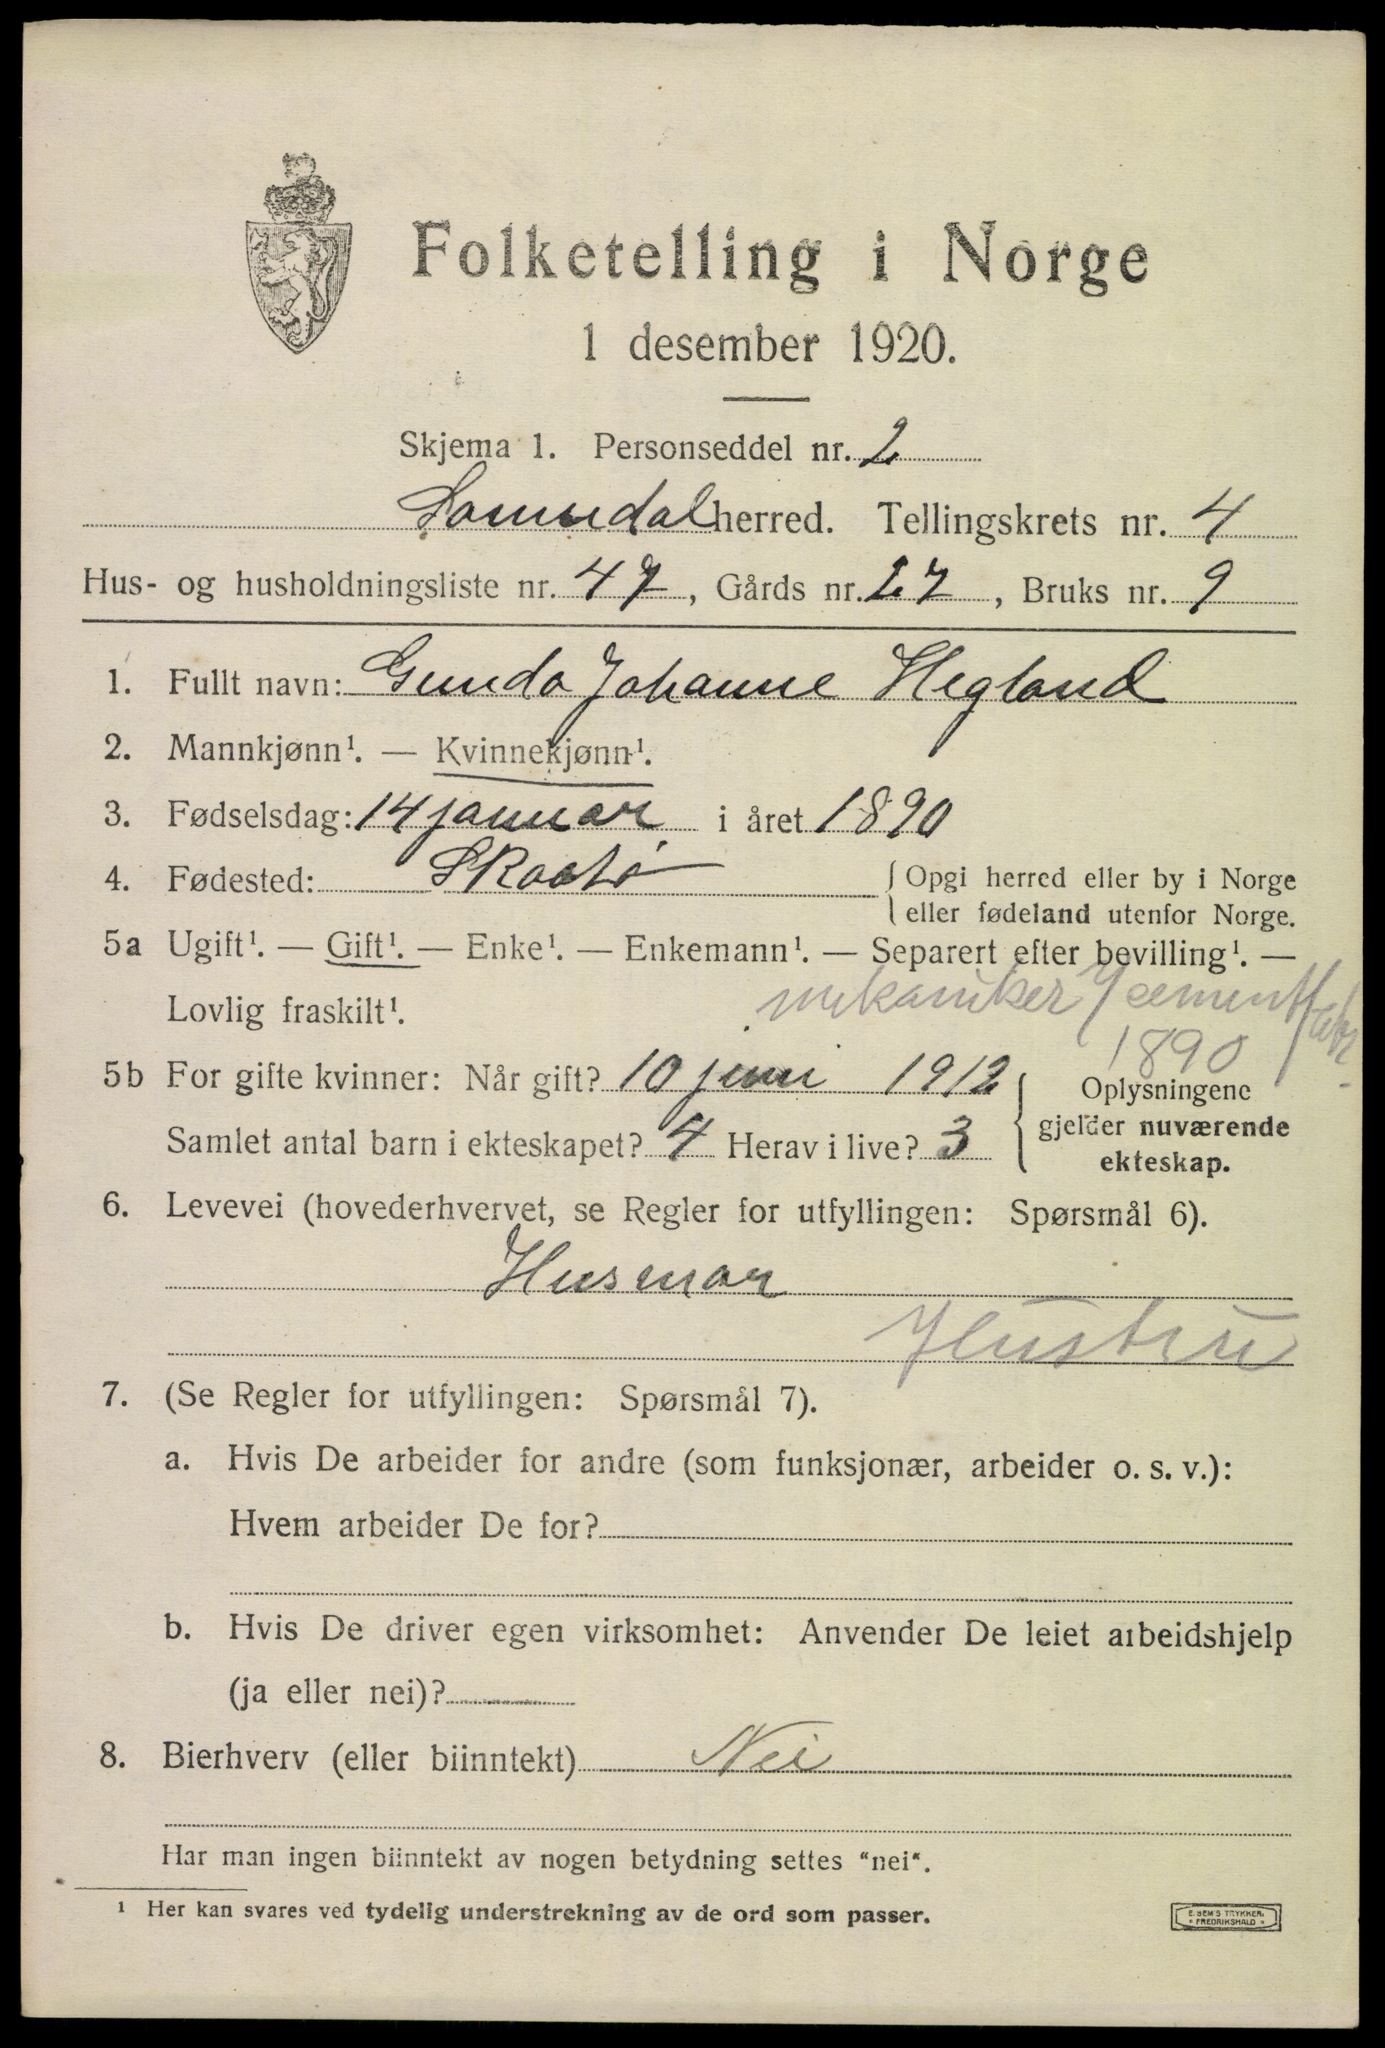 Folketelling i Norge
1 desember 1920.
Skjema 1. Personseddel nr. 2
herred. Tellingskrets nr. 4
Hus- og husholdningsliste nr. 47, Gårds nr. 27, Bruks nr. 9
1. Fullt navn: Gunda Johanne Hegland
2. Mannkjønn¹. — Kvinnekjønn¹.
3. Fødselsdag: 14 januar i året 1890
4. Fødested: Skaatø { Opgi herred eller by i Norge
eller fødeland utenfor Norge.
5a Ugift¹. — Gift¹. — Enke¹. — Enkemann¹. — Separert efter bevilling¹. —
Lovlig fraskilt¹. mekaniker cementfabr.
1890
5b For gifte kvinner: Når gift? 10 juni 1912 { Oplysningene
gjelder nuværende
Samlet antal barn i ekteskapet? 4 Herav i live? 3 ekteskap.
6. Levevei (hovederhvervet, se Regler for utfyllingen: Spørsmål 6).
Husmor
Hustru
7. (Se Regler for utfyllingen: Spørsmål 7).
a. Hvis De arbeider for andre (som funksjonær, arbeider o. s. v.):
Hvem arbeider De for?
b. Hvis De driver egen virksomhet: Anvender De leiet arbeidshjelp
(ja eller nei)?
8. Bierhverv (eller biinntekt) Nei
Har man ingen biinntekt av nogen betydning settes "nei".
¹ Her kan svares ved tydelig understrekning av de ord som passer.
E. SEM'S TRYKKERI
* FREDRIKSHALD *